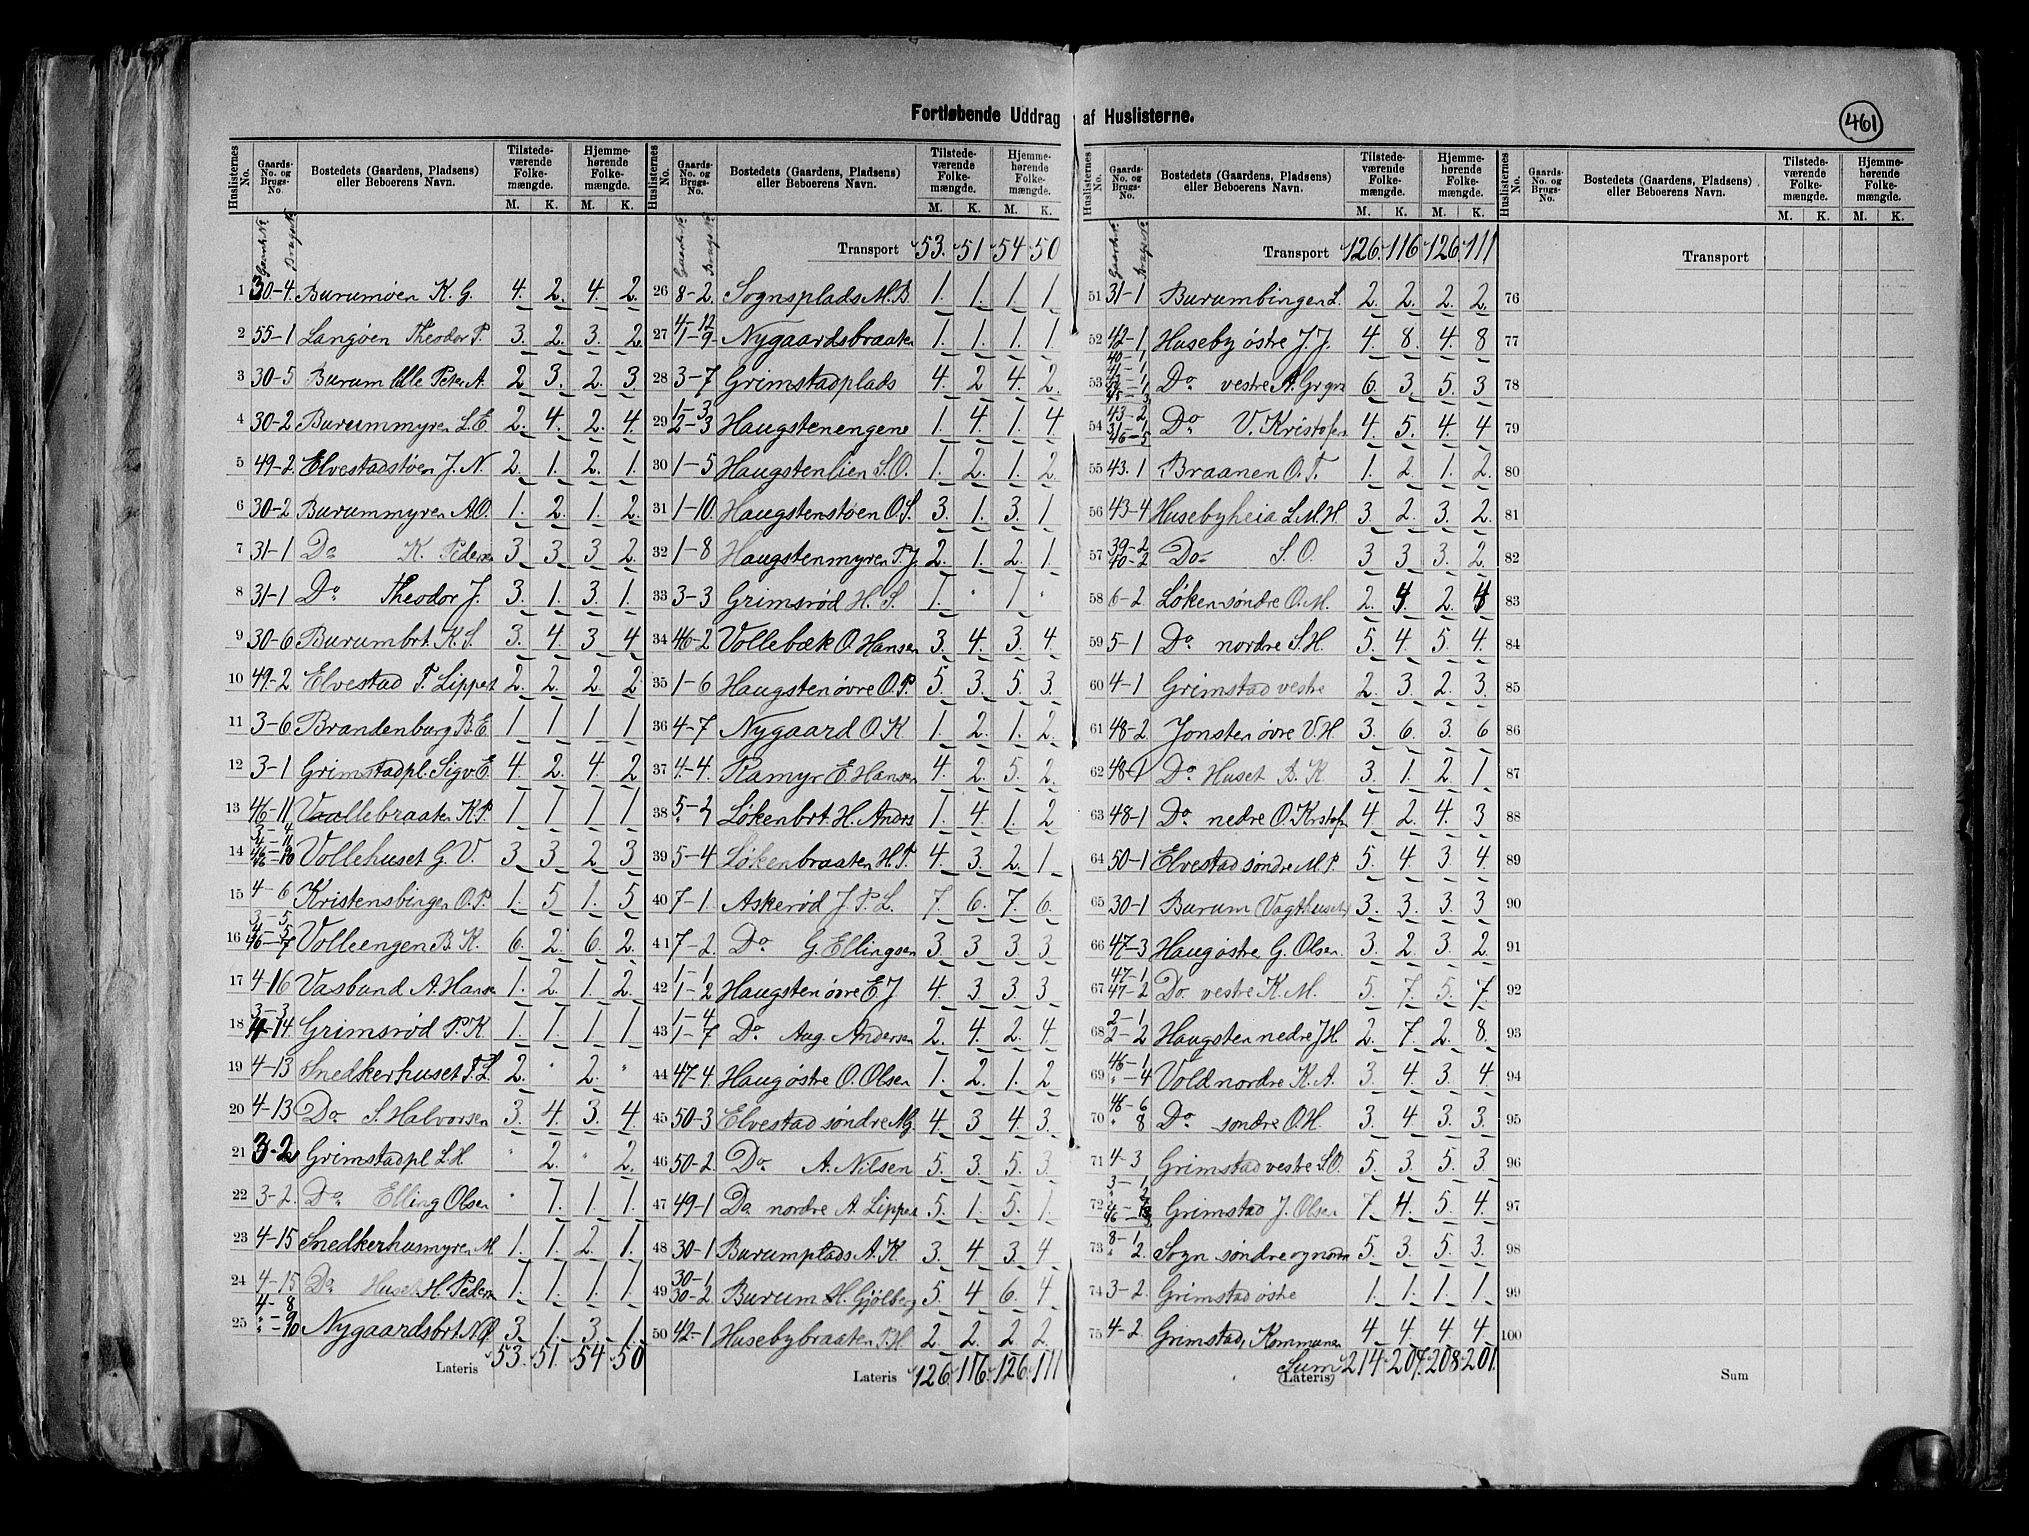 Fortløbende Uddrag af Huslisterne.
461
Huslisternes No. | Gaards-No. og Brugs-No. | Bostedets (Gaardens, Pladsen) eller Beboerens Navn. | Tilstedeværende Folkemængde. M. K. | Hjemmehørende Folkemængde. M. K.
1 30-4 Burumøen K. G. 4. 2. 4. 2.
2 55-1 Langøen Theodor P. 3. 2. 3. 2.
3 30-5 Burum lille Peter A. 2 3. 2. 3
4 30-2 Burummyren L. E 2. 4. 2. 4.
5 49-2 Elvestadstøen J. N. 2. 1. 2. 1.
6 30-2 Burummyren A.O. 1. 2. 1. 2.
7 31-1 Do K. Pedersen 3 3 3 2.
8 31-1 Do Theodor J. 3. 1. 3. 1.
9 30-6 Burumbrt. K. S. 3. 4. 3 4
10 49-2 Elvestad T. Lippest 2. 2. 2. 2
11 3-6 Brandenburg B. E 1 1 1 1
12 3-1 Grimstadpl. Sigv. E. 4. 2. 4. 2
13 46-11 Vaallebraaten K. P. 1 1 1 1
14 Vollehuset G. V. 3 3 2 3
15 4-6 Kristensbingen O. P. 1. 5 1. 5
16 Volleengen B. K. 6. 2. 6. 2.
17 4-16 Vasbund A. Hansn 1. 2. 1. 2.
18 3-3 4-14 Grimsrød P. K 1. 1. 1. 1
19 4-13 Snedkerhuset T. L. 2. " 2. "
20 4-13 Do S. Halvorsen 3. 4. 3. 4.
21 3-2 Grimstadpl L. H. " 2. " 2.
22 3-2. Do Elling Olsen " 1. 1. 1.
23 4-15 Snedkerhusmyren M. 1. 1. 2. 1.
24 4-15 Do Huset H. Pedersn 1. 1. 1. 1.
25 4-8 "-9 "-10 Nygaardsbrt. N. O. 3. 1. 3. 1.
Lateris 53. 51. 54. 50
Huslisternes No. | Gaards-No. og Brugs-No. | Bostedets (Gaardens, Pladsen) eller Beboerens Navn. | Tilstedeværende Folkemængde. M. K. | Hjemmehørende Folkemængde. M. K.
Transport 53. 51 54 50
26 8-2. Sognsplads M. B. 1. 1. 1. 1
27 4-12 1-9 Nygaardsbraaten 1. 1. 1. 1
28 3-7 Grimstadplads 4. 2 4. 2.
29 Haugstenengene 1. 4. 1. 4
30 1-5 Haugstenlien S. O. 1. 2. 1. 2
31 1-10. Haugstenstøen O. S. 3. 1. 3. 1
32 1-8 Haugstenmyren P. J. 2. 1. 2. 1.
33 3-3 Grimsrød H. S. 1. " 1 "
34 46-2 Vollebæk O. Hansen 3. 4. 3. 4
35 1-6 Haugsten øvre O. P. 5. 3. 5. 3.
36 4-7 Nygaard O. K. 1. 2. 1. 2.
37 4-4. Ramyr E. Hansen 4. 2. 5. 2.
38 Løkenbrt. H. Andrs 1. 4. 1. 2
39 5-4 Løkenbraaten H. T. 4. 3. 2. 1
40 7-1. Askerød J. P. L. 7 6. 7. 6.
41 7-2. Do G. Ellingsen 3. 3 3. 3
42 1-1 1-2 Haugsten øvre E. J. 4. 3. 3. 3
43 1-4 1-7 Do Aug. Andersen 2. 4. 2. 4.
44 47-4. Haug østre O. Olsen 1. 2. 1. 2
45 50-3 Elvestad søndre M. G. 4 3 4. 3.
46 50-2. Do A. Nilsen 5. 3. 5. 3.
47 49-1 Do nordre A. Lippest 5. 1. 5. 1.
48 30-1 Burumplads A. K 3. 4 3. 4
49 30-1 30-2. Burum H. Gjølberg 5. 4 6. 4
50 42-1 Husebybraaten P. H. 2 2. 2 2.
Lateris 126. 116. 126. 111
Huslisternes No. | Gaards-No. og Brugs-No. | Bostedets (Gaardens, Pladsen) eller Beboerens Navn. | Tilstedeværende Folkemængde. M. K. | Hjemmehørende Folkemængde. M. K.
Transport 126. 116 126 111
51 31-1 Burumbingen L. 2. 2. 2. 2.
52 42-1 Huseby østre J. J. 4. 8. 4. 8
53 Do vestre A. 6. 3. 5. 3
54 Do V. Kristofn 4. 5. 4. 4
55 43.1 Braanen O. T. 1. 2 1. 2.
56 43-4 Husebyheia L. M. H. 3. 2. 3. 2.
57 39-2 40-2 Do S. O. 3 3 3. 2.
58 6-2. Løken søndre O. M. 2. 4. 2. 4
59 5-1 Do nordre S. H. 5. 4. 5. 4.
60 4-1 Grimstad vestre 2. 3. 2. 3.
61 48-2 Jonsten øvre V. H. 3. 6. 3. 6
62 48-1 Do Huset B. K. 3. 1. 2 1
63 48-1 Do nedre O. Krstofn 4 2. 4. 3
64 50-1 Elvestad søndre M. P. 5. 4. 3 4.
65 30-1 Burum Vagthuset 3. 3. 3. 3
66 47-3 Haug østre G. Olsen 3. 2 3. 2
67 47-1 47-2 Do. vestre K. M. 5. 7 5. 7.
68 2-1 2-2 Haugsten nedre J. H. 2. 7. 2. 8.
69 46-1 "-4 Vold nordre K. A. 3. 4. 3. 4.
70 46-6 " 8 Do søndre O. H. 3. 4 3. 3.
71 4-3 Grimstad vestre S. O. 5. 3. 5. 3.
72 Grimstad J. Olsen 7. 4. 5 4.
73 8-1 " 2. Sogn søndre og nordre 5. 3. 5. 3.
74 3-2. Grimstad østre 1. 1. 1. 1
75 4-2. Grimstad, Kommunen 4 4. 4 4.
Sum (Lateris) 214. 204. 208. 201.
Huslisternes No. | Gaards-No. og Brugs-No. | Bostedets (Gaardens, Pladsens) eller Beboerens Navn. | Tilstedeværende Folkemængde. M. K. | Hjemmehørende Folkemængde. M. K.
Transport
76
77
78
79
80
81
82
83
84
85
86
87
88
89
90
91
92
93
94
95
96
97
98
99
100
Sum